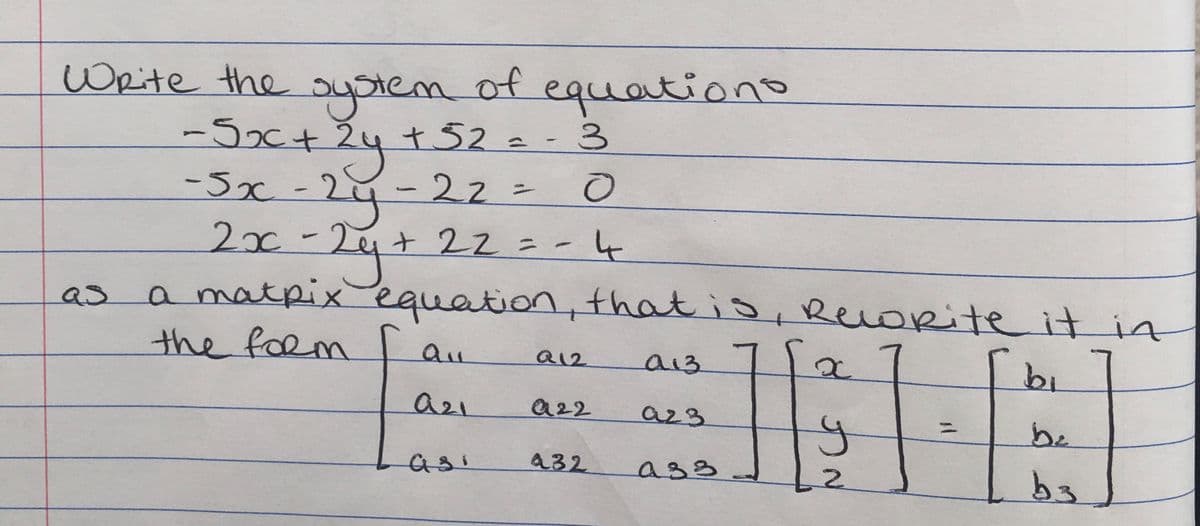 Write the system of equations
-5x + 2y + 5z = -3
-5x - 2y - 2z = 0
2x - 2y + 2z = -4
as a matrix equation, that is, Rewrite it in
the form [ a11 a12 a13 ] [ x ] [ b1 ]
a21 a22 a23 y = b2
a31 a32 a33 z b3